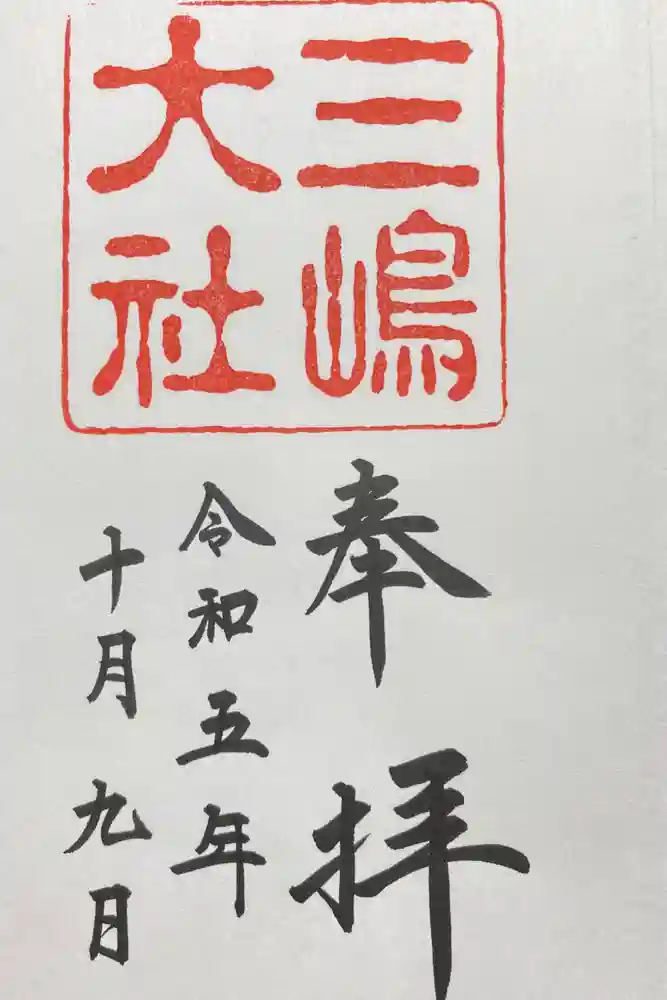 三嶋
大社
奉拝
令和五年
十月九日